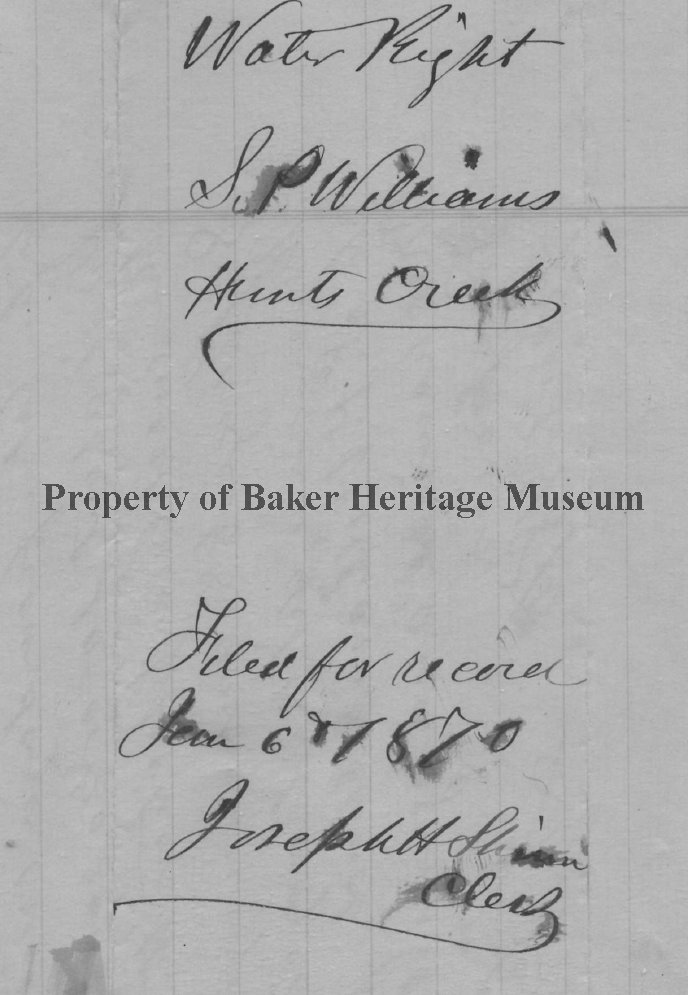 Water Right
S. P. Williams
Hunts Creek
Property of Baker Heritage Museum
Filed for record
Jan 6th 1870
Joseph H Shinn
Clerk